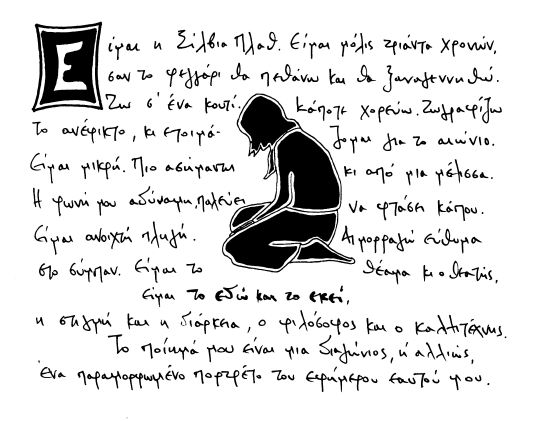 Είμαι η Σίλβια Πλαθ. Είμαι μόλις τριάντα χρονών,
σαν το φεγγάρι θα πεθάνω και θα ξαναγεννηθώ.
Ζω σ' ένα κουτί. Κάποτε χορεύω. Ζωγραφίζω
το ανέφικτο, κι ετοιμά- ζομαι για το αιώνιο.
Είμαι μικρή. Πιο ασήμαντη κι από μια μέλισσα.
Η φωνή μου αδύναμη, παλεύει να φτάσει κάπου.
Είμαι ανοιχτή πληγή. Αιμορραγώ εύθυμα
στο σύμπαν. Είμαι το θέαμα κι ο θεατής,
είμαι το εδώ και το εκεί,
η στιγμή και η διάρκεια, ο φιλόσοφος και ο καλλιτέχνης.
Το ποίημά μου είναι μια διαγώνιος, ή αλλιώς,
ένα παραμορφωμένο πορτρέτο του εφήμερου εαυτού μου.